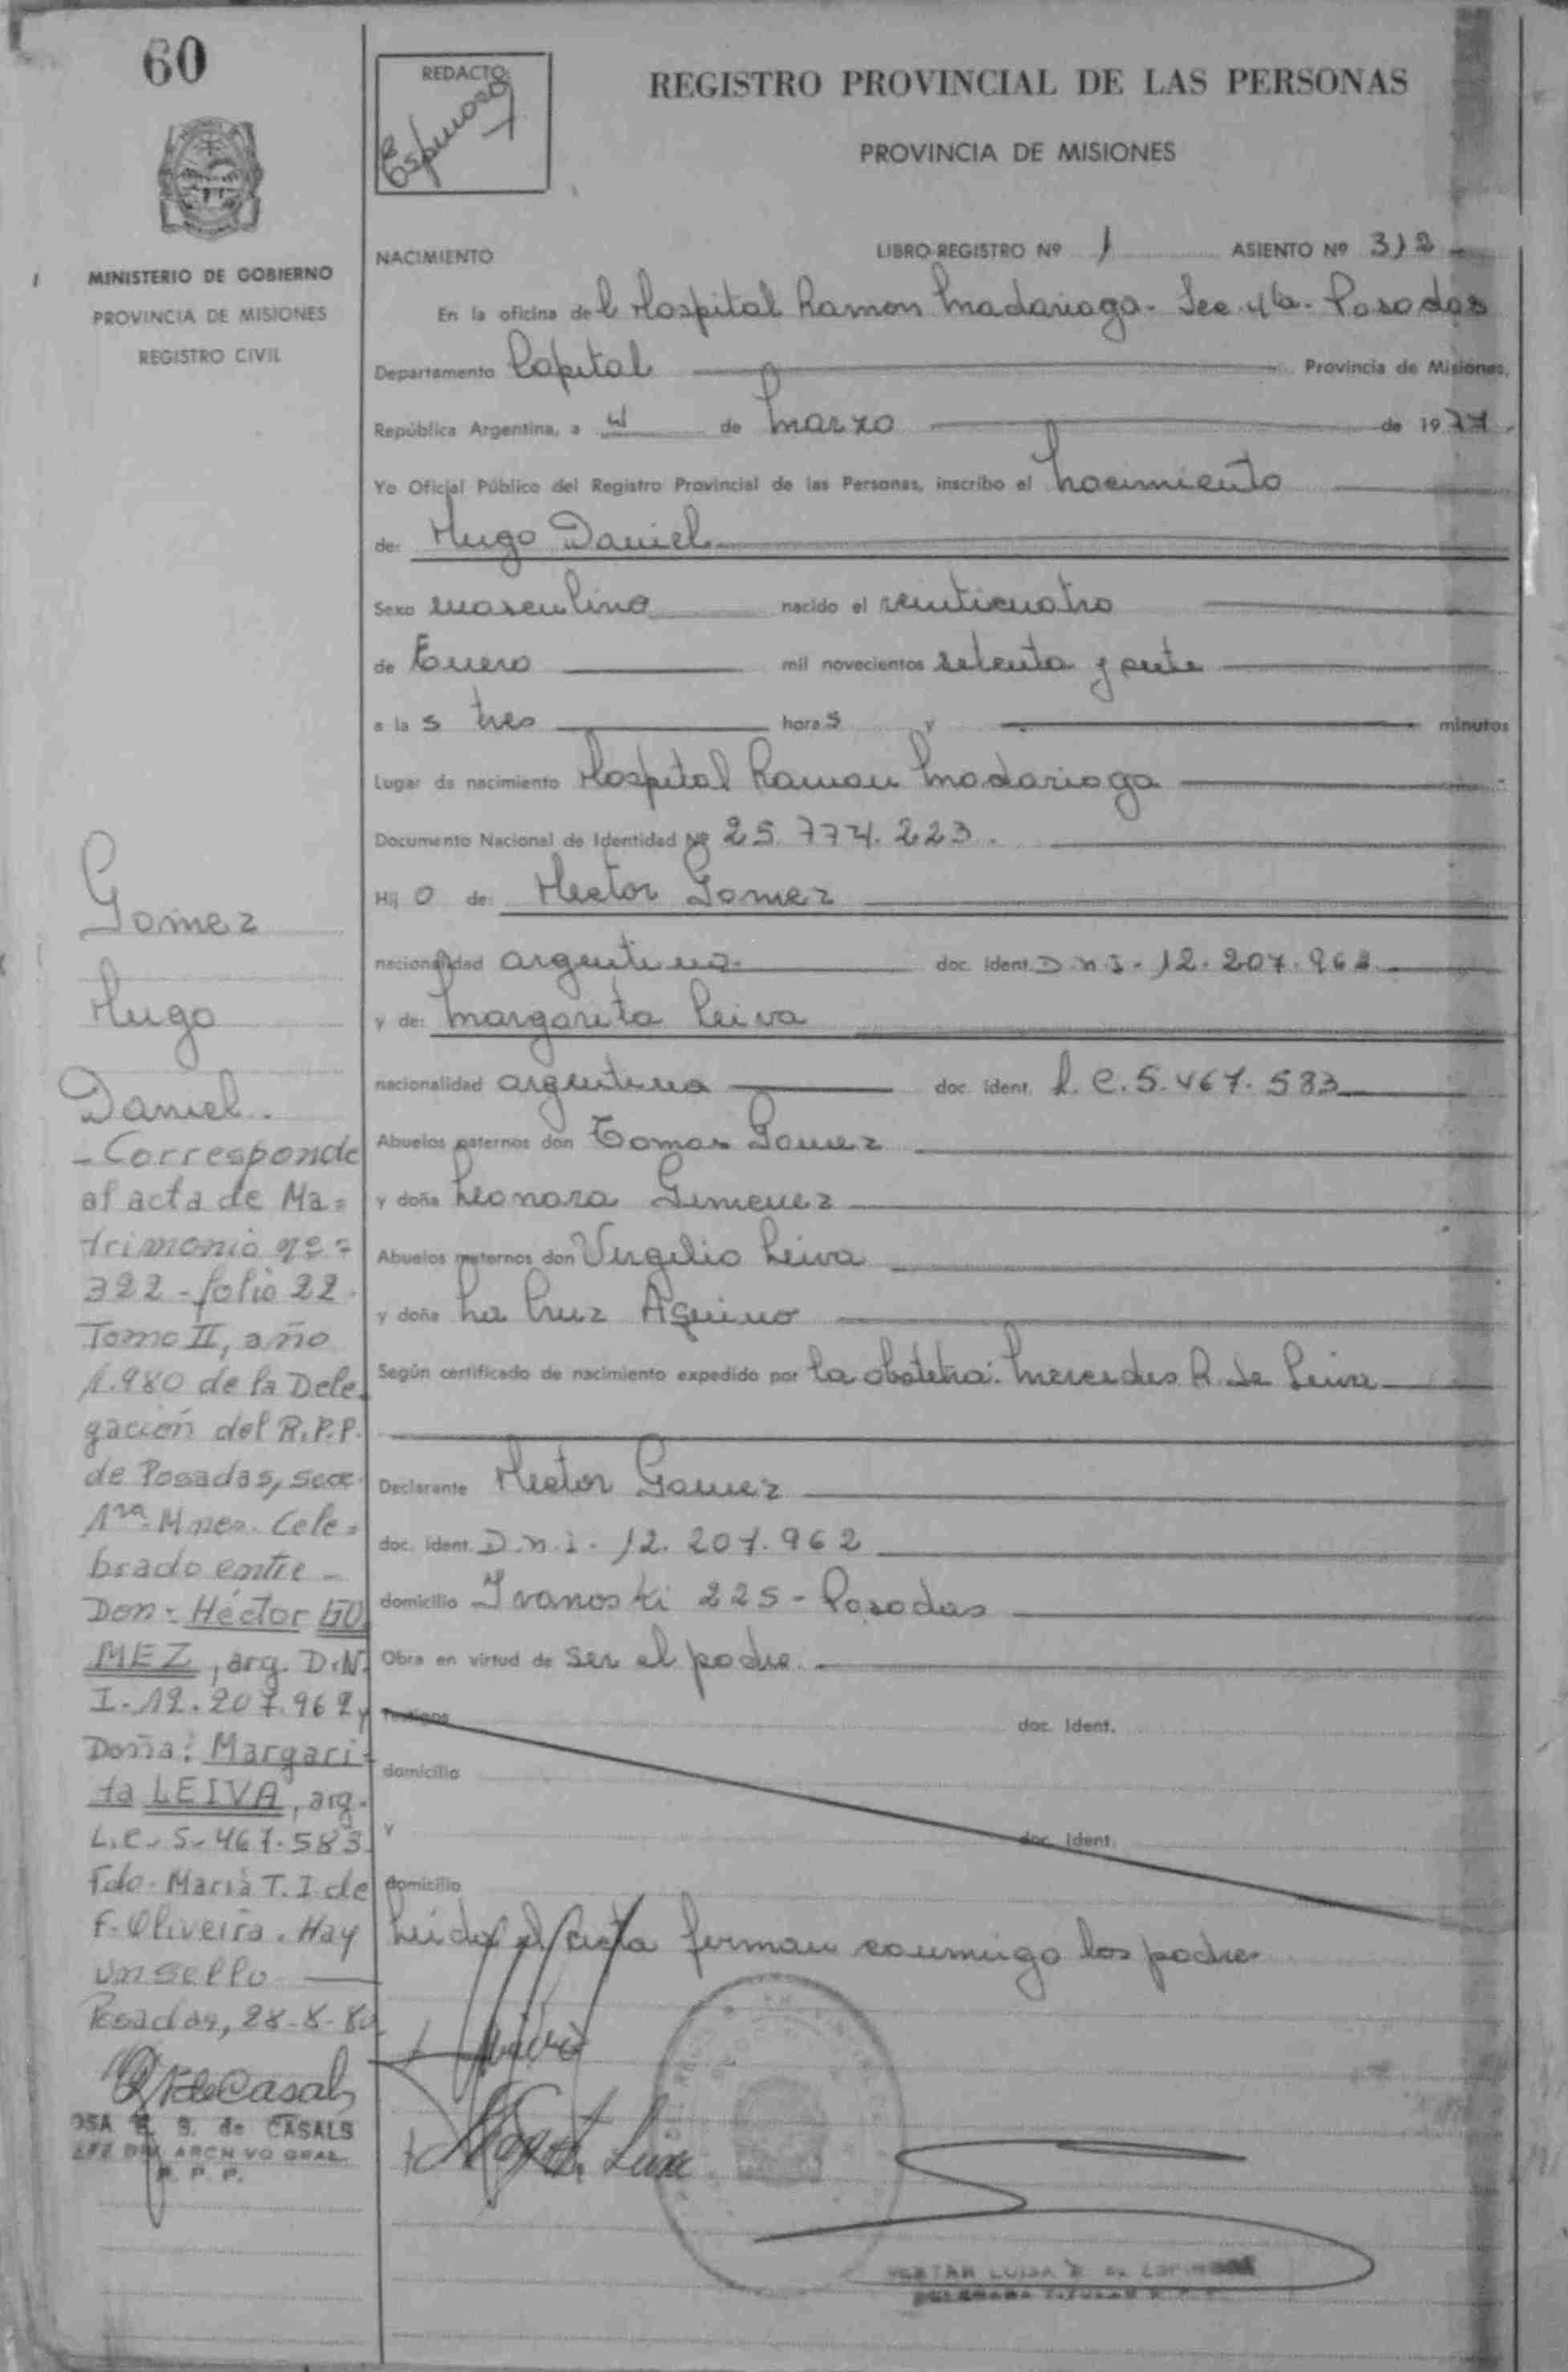 60
REDACTO:
Espinosa
REGISTRO PROVINCIAL DE LAS PERSONAS
PROVINCIA DE MISIONES
MINISTERIO DE GOBIERNO
PROVINCIA DE MISIONES
REGISTRO CIVIL
NACIMIENTO LIBRO-REGISTRO Nº 1 ASIENTO Nº 312
En la oficina del Hospital Ramon Madariaga - Sec 4ta - Posadas
Departamento Capital Provincia de Misiones,
República Argentina, a 4 de Marzo de 1977.
Yo Oficial Público del Registro Provincial de las Personas, inscribo el Nacimiento
de: Hugo Daniel
Sexo masculino nacido el veinticuatro
de Enero mil novecientos setenta y siete
a las tres horas y minutos
Lugar de nacimiento Hospital Ramon Madariaga
Documento Nacional de Identidad Nº 25.774.223.
Hijo de: Hector Gomez
nacionalidad argentina doc. ident. D.N.I. 12.207.962
y de: Margarita Leiva
nacionalidad argentina doc. ident. L.C. 5.467.583
Abuelos paternos don Tomas Gomez
y doña Leonora Gimenez
Abuelos maternos don Virgilio Leiva
y doña La Cruz Aquino
Según certificado de nacimiento expedido por la obstetra: Mercedes R. de Leiva
Declarante Hector Gomez
doc. ident. D.N.I. 12.207.962
domicilio Ivanoski 225 - Posadas
Obra en virtud de ser el padre
Testigos doc. ident.
domicilio
y doc. ident.
domicilio
Leida el acta firman conmigo los padres
Gomez
Hugo
Daniel.
- Corresponde
al acta de Ma=
trimonio nº=
322 - folio 22.
Tomo II, año
1.980 de la Dele
gación del R.P.P.
de Posadas, secc.
1ra. Mnes. Cele=
brado entre -
Don: Héctor GO
MEZ, arg. D.N.
I. 12.207.962 y
Doña: Margari-
ta LEIVA, arg.
L.C. 5.467.583
Fdo. Maria T. I de
F. Oliveira. Hay
un sello
Posadas, 28-8-80
de Casals
OSA E. S. de CASALS
ARCHIVO GRAL.
R. P. P.